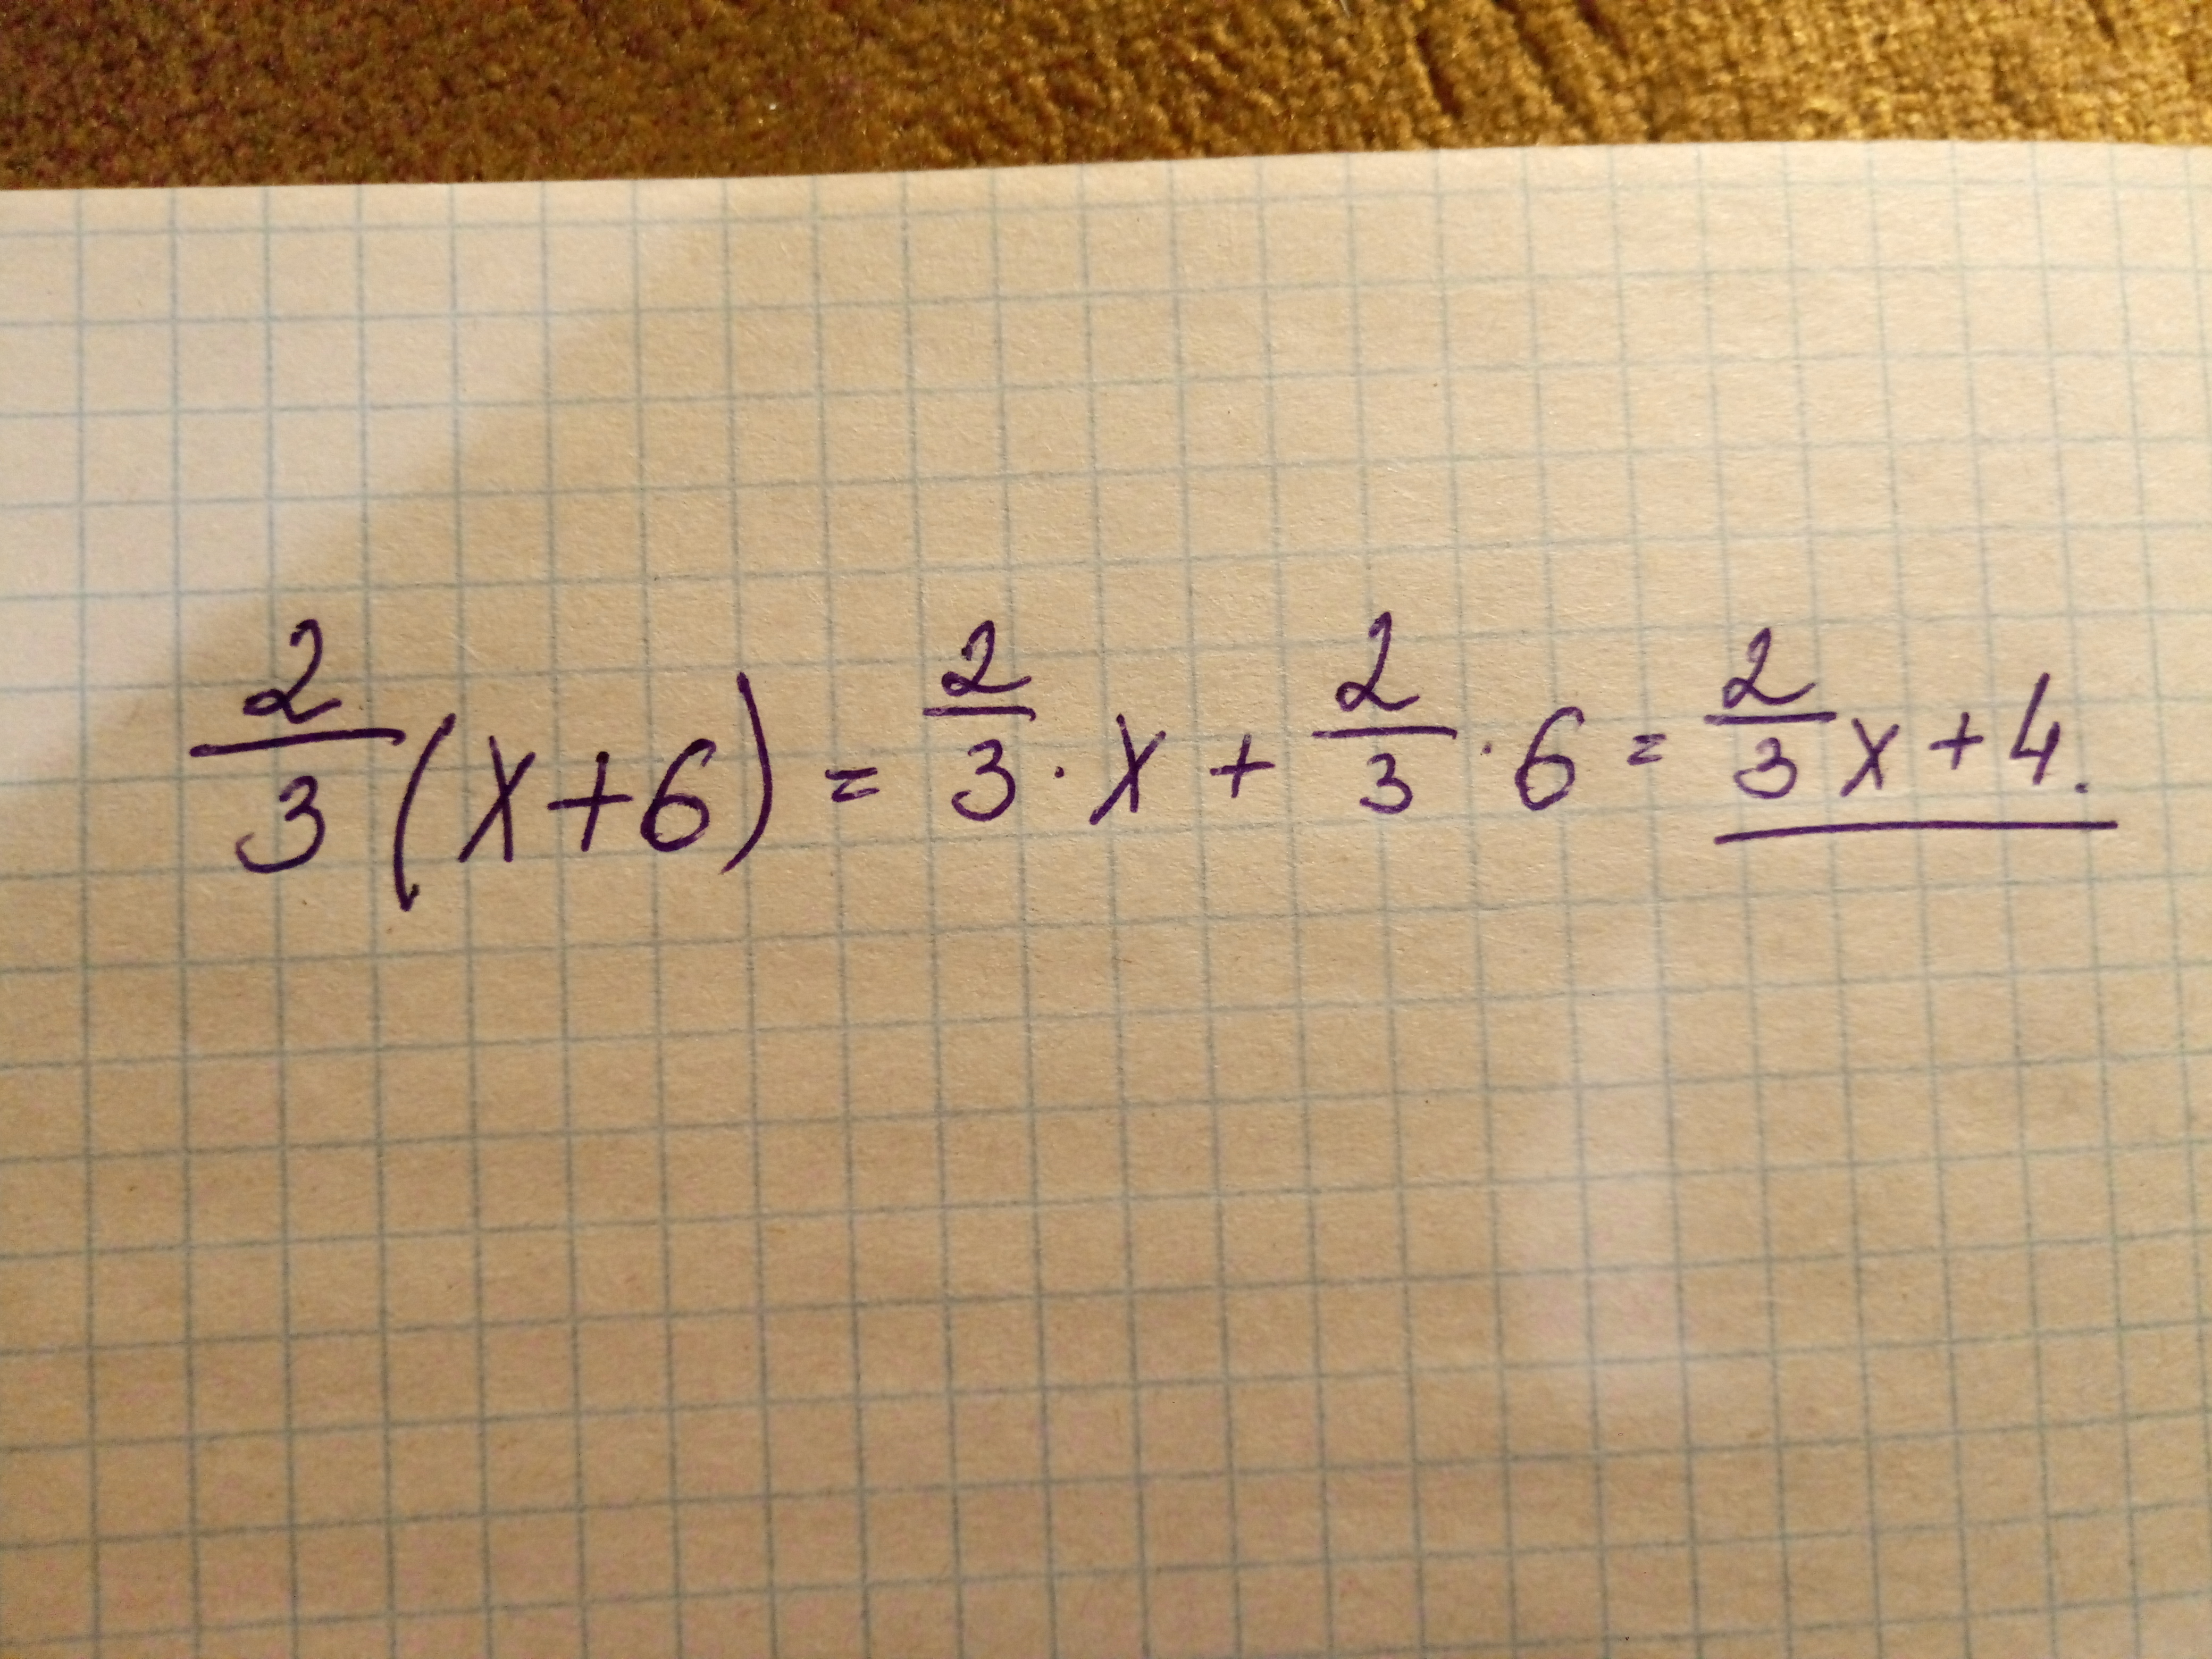 2/3 (x+6) = 2/3 · x + 2/3 · 6 = 2/3 x + 4.